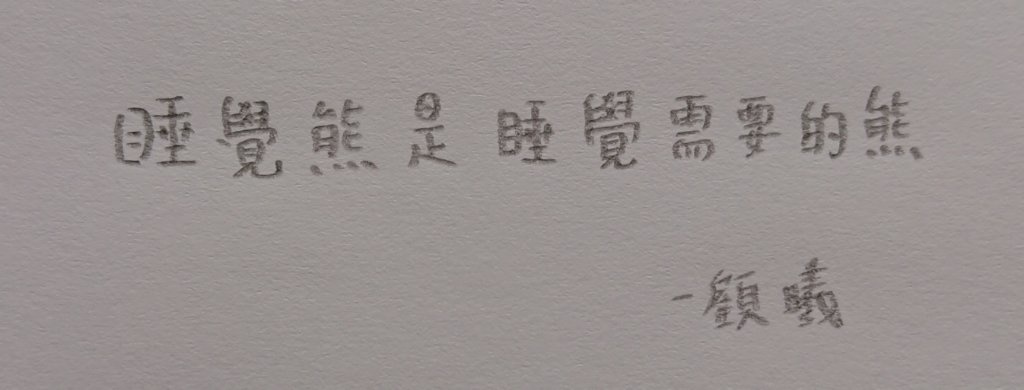 睡覺熊是睡覺需要的熊
-顧曦